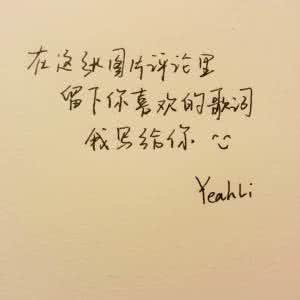 在这张图片评论里
留下你喜欢的歌词
我写给你
YeahLi